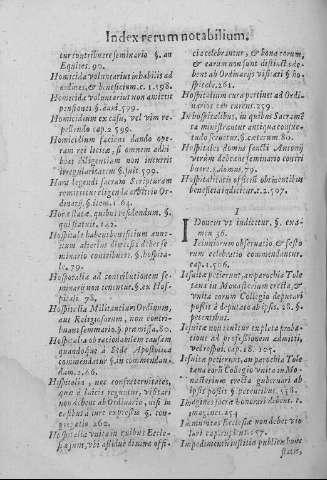 Index rerum notabilium.
tur contribuere seminario §. an
Equites. 90.
Homicida voluntarius inhabilis ad
ordines, & beneficium. c. 1. 598.
Homicida voluntarius non amittit
pensiones §. 599.
Homicidium ex casu, vel vim re-
pellendo cap. 2 599.
Homicidium faciens dando ope-
ram rei licitæ, si omnem adhi
buit diligentiam non incurrit
irregularitatem §. 599.
Hora legendi sacram Scripturam
remittitur electioni arbitrio Or-
dinarij. §. item. 64.
Hospitale habens beneficium anne-
xum alterius diœcesis debet se
minario contribuere. §. hospita-
le. 79.
Hospitalia ad contributionem se-
minarij non tenentur. §. ex Hos-
pitali. 78.
Hospitalia Militantium Ordinum,
aut Religiosorum, non contri-
buunt seminario. §. præmissa. 80.
Hospitalia ob rationabilem causam
quandoque à Sede Apostolica
commendantur §. in commendam
dam. 2. 66.
Hospitalia, nec confraternitates,
quæ à laicis reguntur, visitari
non debent ab Ordinario, nisi in
casibus à iure expressis §. con-
gregatio 262.
Hospitalia unita in quibus Eccle-
siæ sunt, ubi assidue divina offi-
cia celebrantur, & bona eorum,
& earum non sunt distincta de-
bent ab Ordinarijs visitari §. ho-
spitale. 261.
Hospitalium cura pertinet ad Ordi
narios cap. curent. 259.
In hospitalibus, in quibus Sacramē
ta ministrantur antiqua consue-
tudo servetur. §. cæterum 80.
Hospitales domus sancti Antonij
verum debeant seminario contri
buere. §. domus. 79.
Hospitalitatis officium obtinentibus
beneficia indicitur. c. 2. 507.
I
IDoneus ut indicetur. §. exa-
men 36.
Ieiuniorum observatio & festo
rum celebratio commendantur.
cap. 1. 506.
Iesuitæ poterunt, an parochia Tole
tana in Monasterium erecta, &
unita eorum Collegio deputari
possit §. potentibus.
Iesuitæ non tenentur expleta proba-
tione ad professionem admitti,
vel respui. cap. 18. 505.
Iesuitæ petierunt, an parochia Tole
tana eorū Collegio unita in Mo-
nasterium erecta gubernari ab
ipsis possit §. petentibus. 538.
Imagines sacræ honorari debent. i-
magines. 254
Immunitas Ecclesiæ non debet vio
lari
Impedimentū iustitiæ publicæ hone
statis,